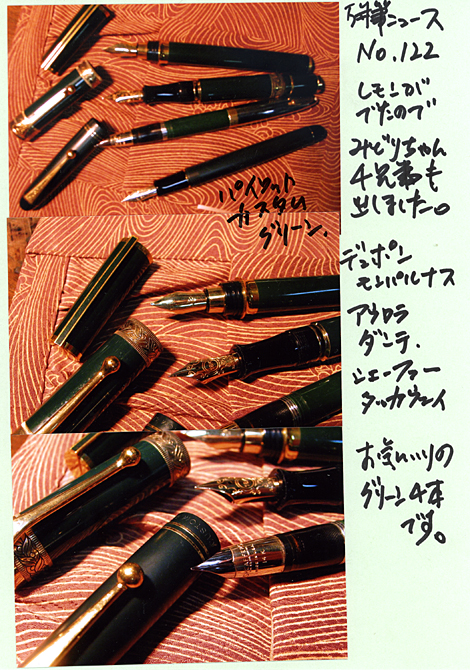 万年筆ニュース
No.122
レモンが
でたので
みどりちゃん
4兄弟も
出しました。
パイロット
カスタム
グリーン.
デュポン
モンパルナス
アウロラ
ダンテ.
シェーファー
タッカウェイ
お気に入りの
グリーン4本
です。